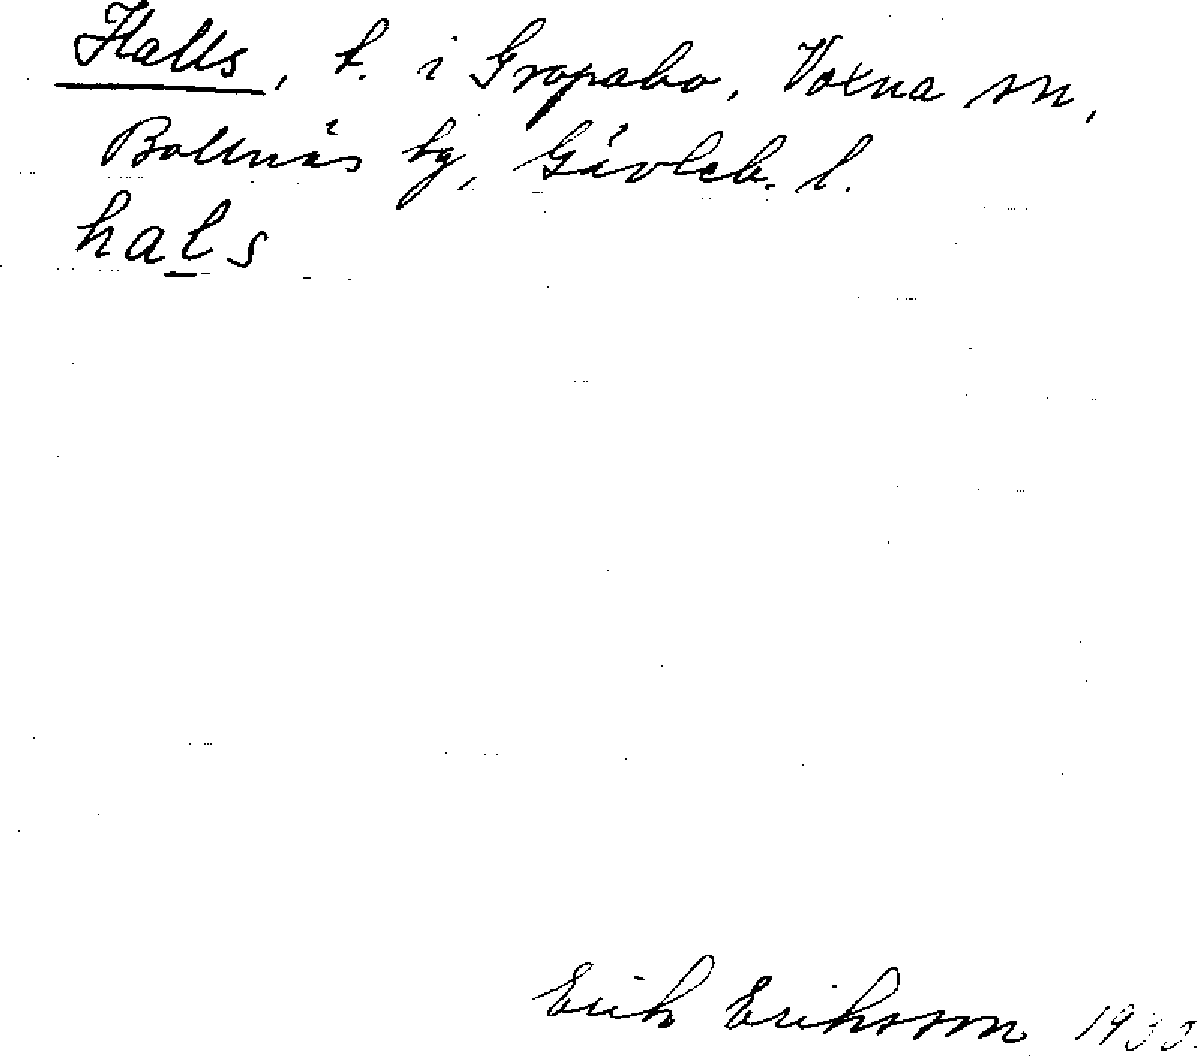 Halls, t. i Gropabo, Voxna sn,
Bollnäs tg, Gävleb. l.
hals
Erik Eriksson 1930.